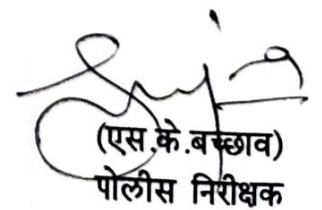 (एस.के.बच्छाव)
पोलीस निरीक्षक